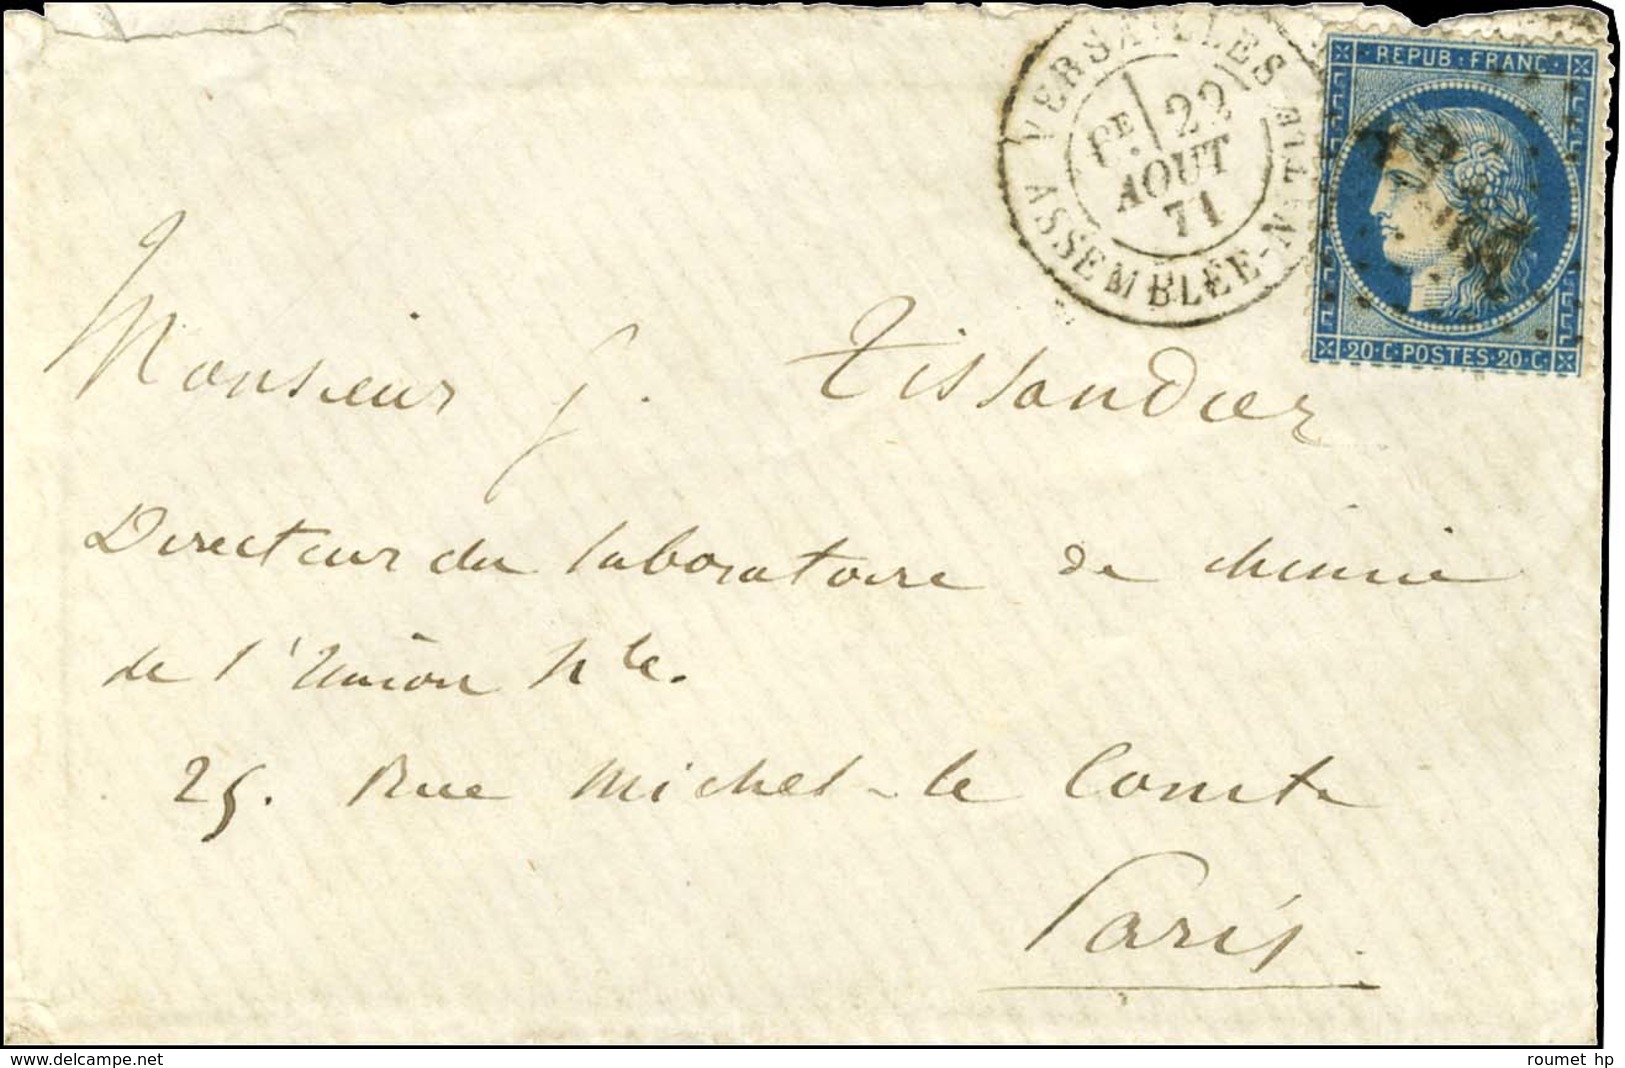 VERSAILLES
ASSEMBLÉE-NATLE
PE. 22
AOUT
71
REPUB·FRANC·
20·C·POSTES·20·C·
Monsieur G. Tissandier
Directeur du laboratoire de chimie
de l'Union Nle.
25. Rue Michel-le Comte
Paris.
www.delcampe.net
roumet hp